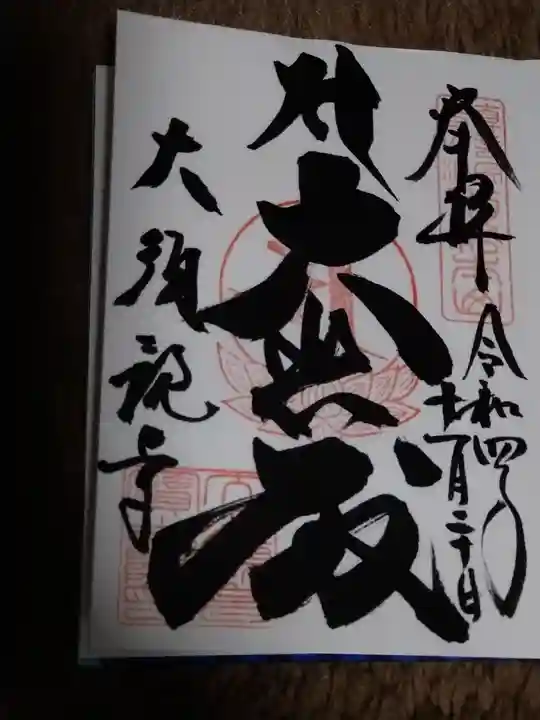 奉拝 令和四年
十一月二十日
大悲殿
大須観音